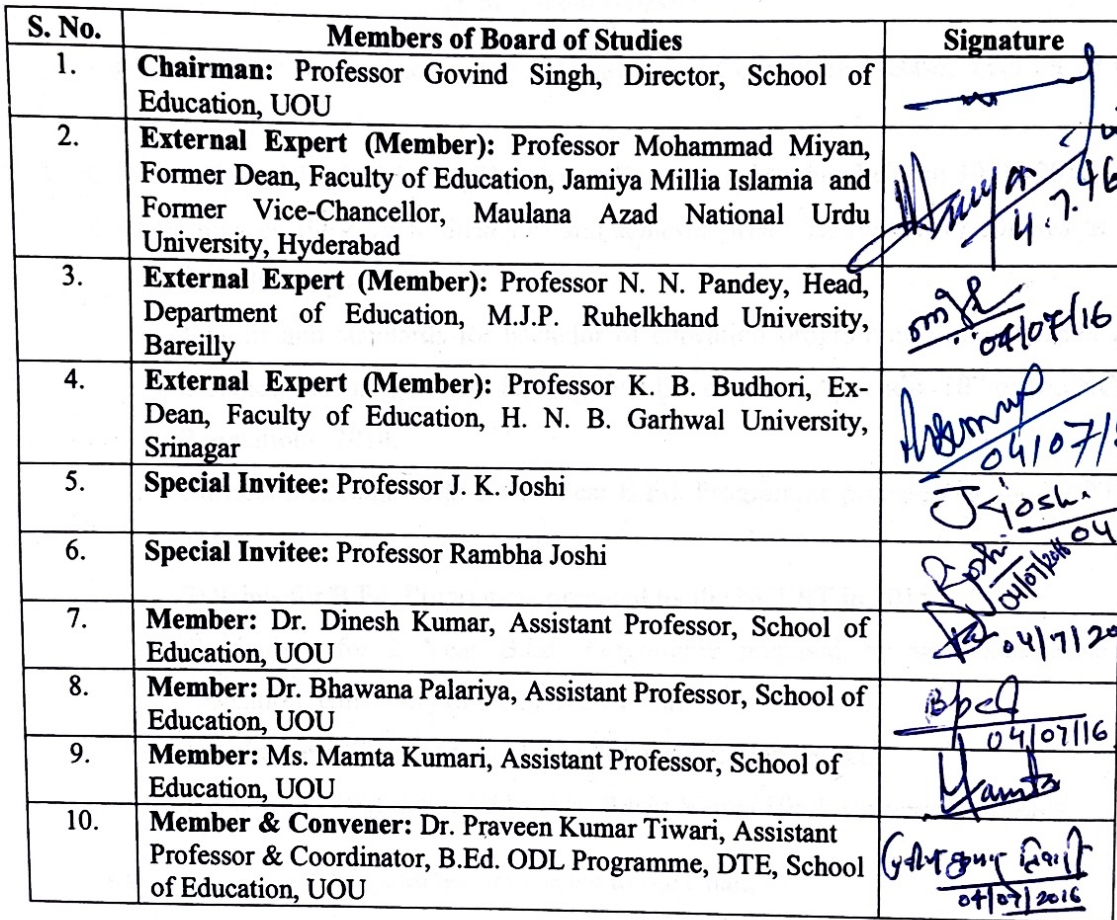 S. No. Members of Board of Studies Signature
1. Chairman: Professor Govind Singh, Director, School of
Education, UOU
2. External Expert (Member): Professor Mohammad Miyan,
Former Dean, Faculty of Education, Jamiya Millia Islamia and
Former Vice-Chancellor, Maulana Azad National Urdu
University, Hyderabad
4.7.16
3. External Expert (Member): Professor N. N. Pandey, Head,
Department of Education, M.J.P. Ruhelkhand University,
Bareilly
04/07/16
4. External Expert (Member): Professor K. B. Budhori, Ex-
Dean, Faculty of Education, H. N. B. Garhwal University,
Srinagar
04/07/
5. Special Invitee: Professor J. K. Joshi
JKJoshi
04
6. Special Invitee: Professor Rambha Joshi
RJoshi
04/07/2016
7. Member: Dr. Dinesh Kumar, Assistant Professor, School of
Education, UOU
04/7/20
8. Member: Dr. Bhawana Palariya, Assistant Professor, School of
Education, UOU
04/07/16
9. Member: Ms. Mamta Kumari, Assistant Professor, School of
Education, UOU
Mamta
10. Member & Convener: Dr. Praveen Kumar Tiwari, Assistant
Professor & Coordinator, B.Ed. ODL Programme, DTE, School
of Education, UOU
04/07/2016